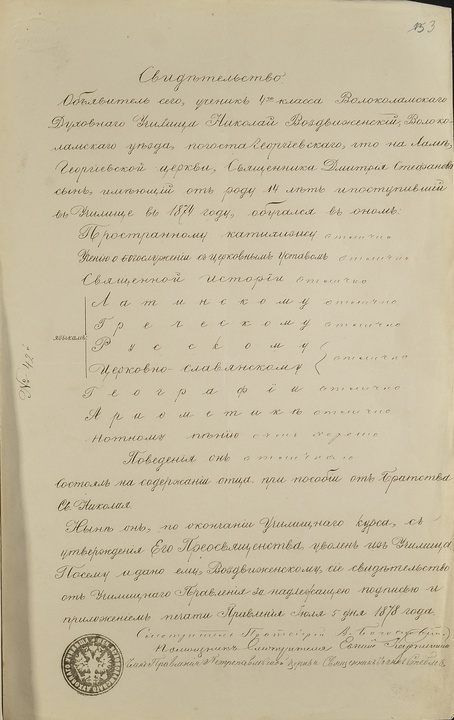 153
Свидѣтельство.
Объявитель сего, ученикъ 4го класса Волоколамскаго
Духовнаго Училища Николай Воздвиженскій, Волоко-
ламскаго уѣзда, погоста Георгіевскаго, что на Ламѣ,
Георгіевской церкви, Священника Дмитрія Стефанова
сынъ, имѣющій отъ роду 14 лѣтъ и поступившій
въ Училище въ 1874 году, обучался въ ономъ:
Пространному катихизису отлично
Ученію о богослуженіи съ церковнымъ Уставомъ отлично
Священной исторіи отлично
языкамъ
Латинскому отлично
Греческому отлично
Русскому
Церковно-славянскому отлично
Географіи отлично
Ариѳметикѣ отлично
Нотному пѣнію очень хорошо
№ 42й
Поведенія онъ отличнаго
Состоялъ на содержаніи отца при пособіи отъ Братства
Св. Николая
Нынѣ онъ, по окончаніи Училищнаго курса, съ
утвержденія Его Преосвященства уволенъ изъ Училища,
Посему и дано ему, Воздвиженскому, сіе свидѣтельство
отъ Училищнаго Правленія за надлежащею подписью и
приложеніемъ печати Правленія Іюля 5 дня 1878 года
Смотритель Протоіерей
Помощникъ Смотрителя
Членъ Правленія Священникъ